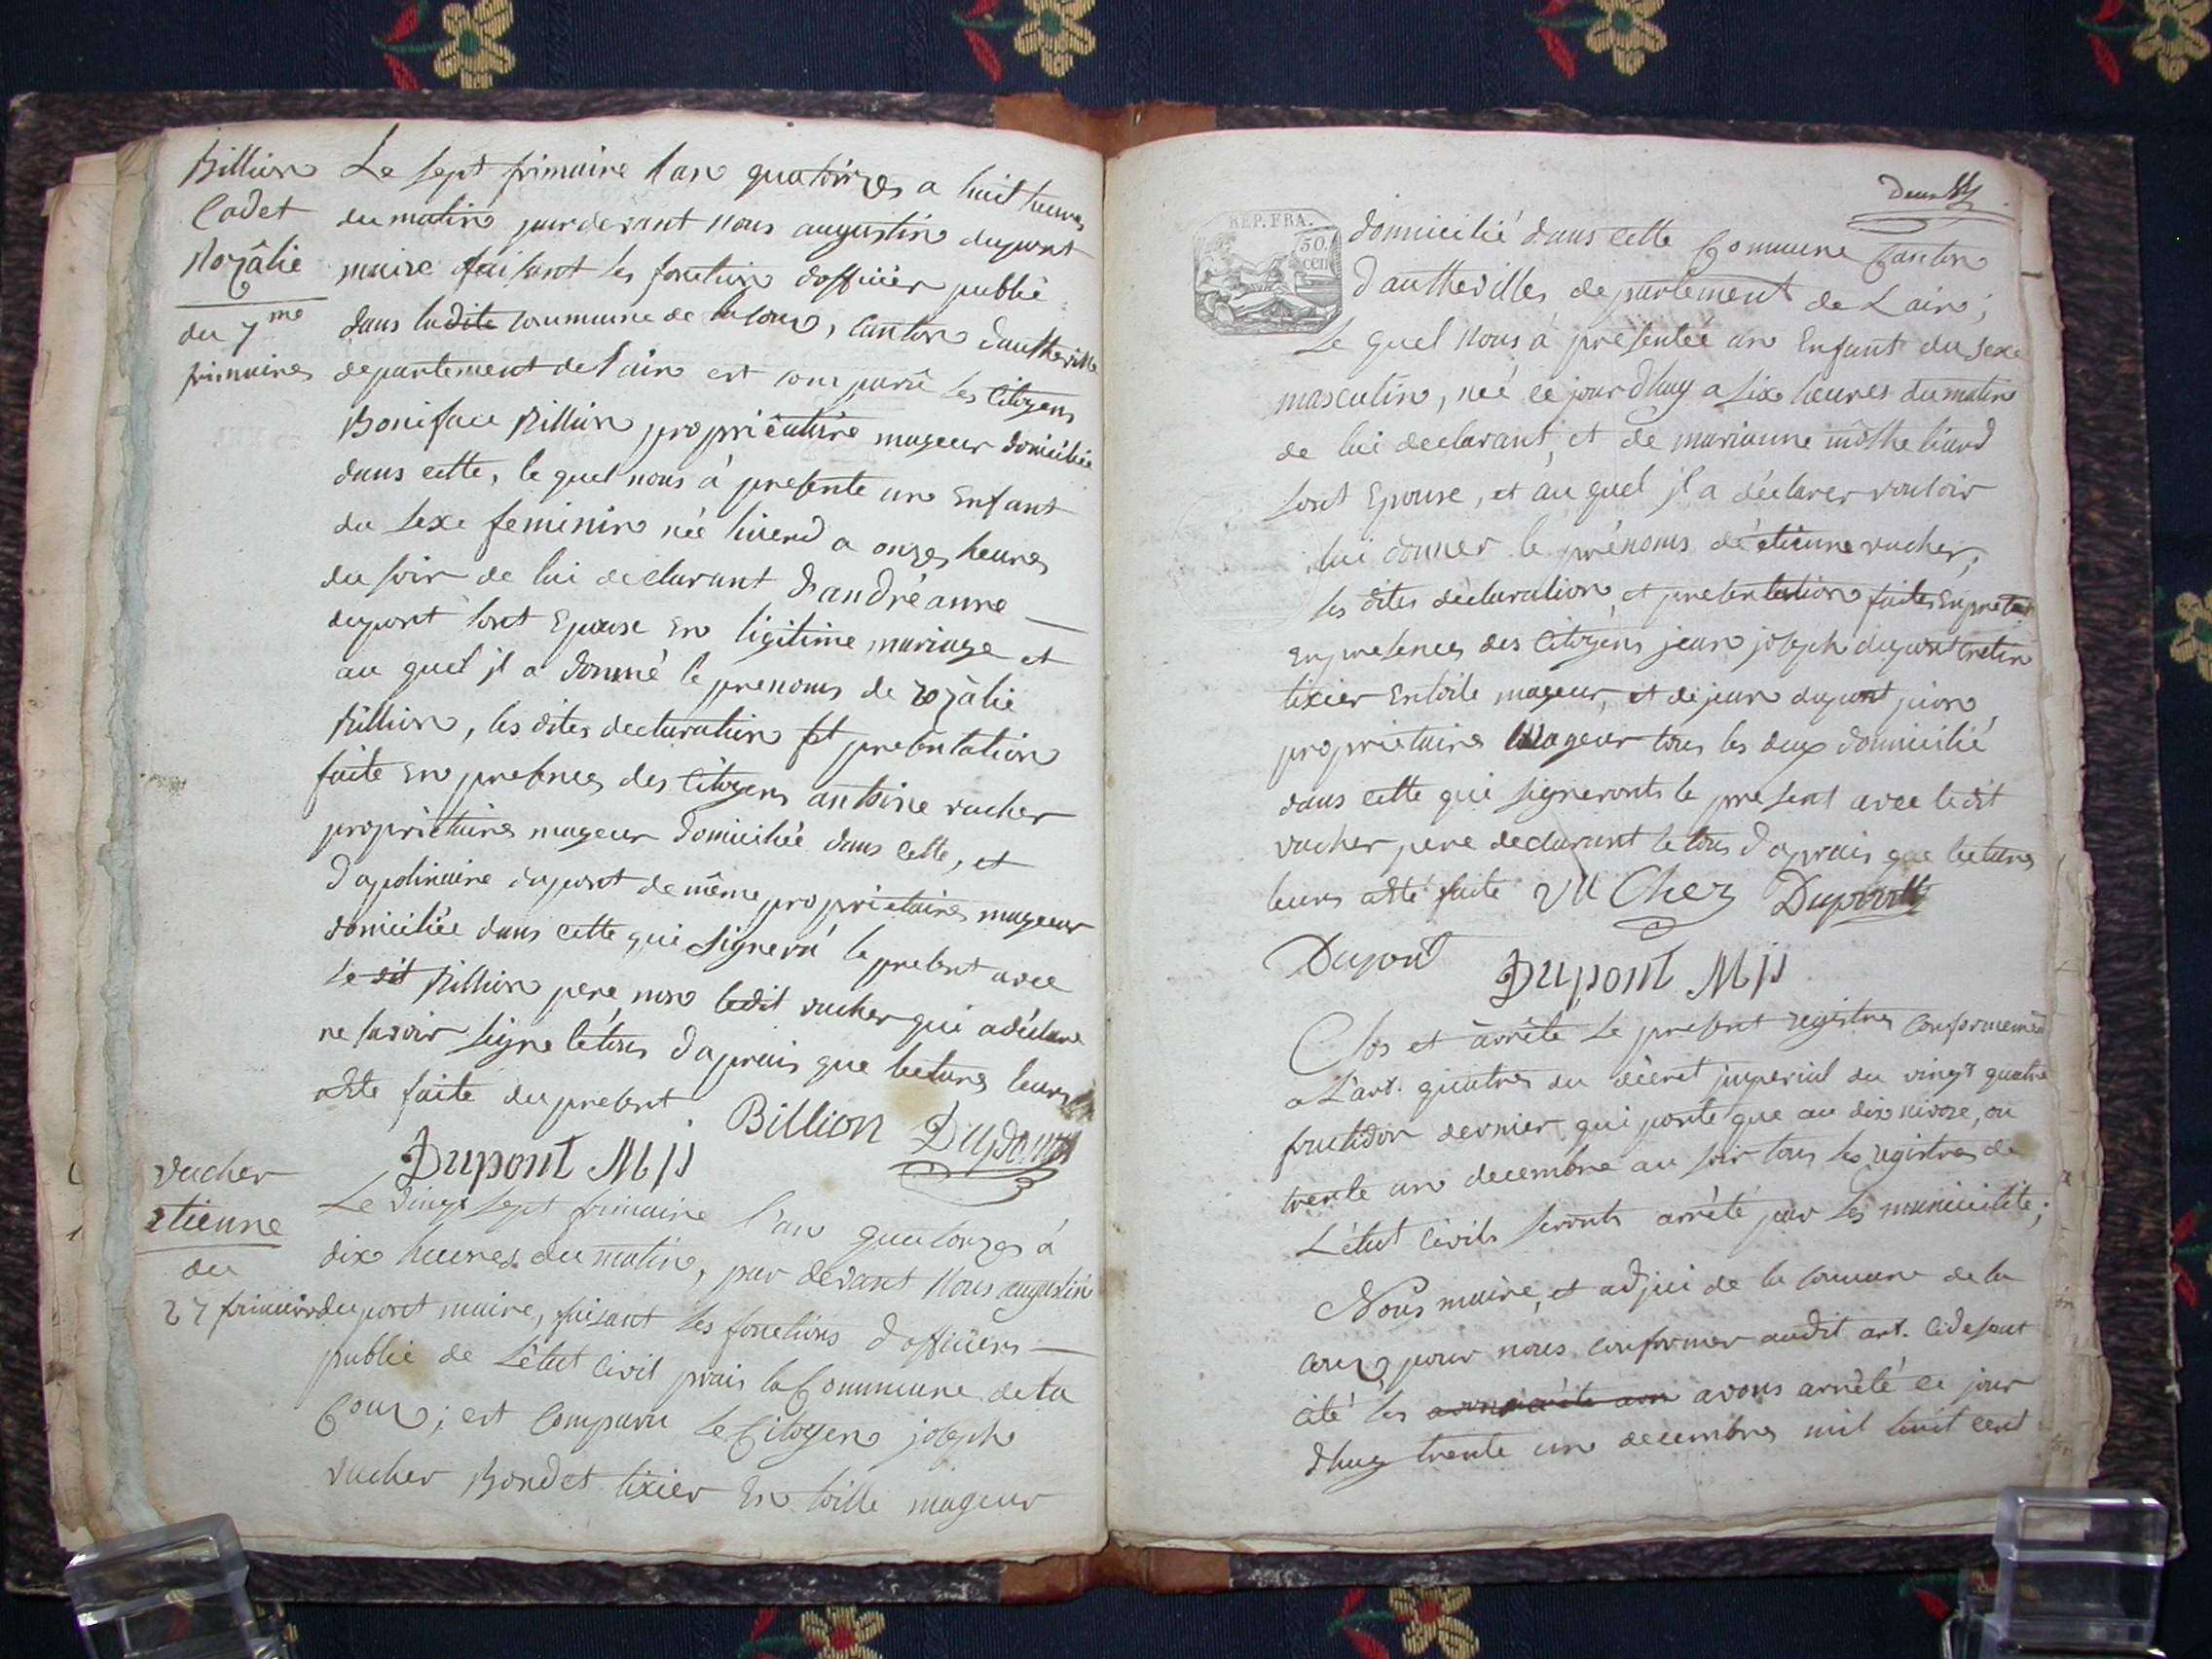 Billion
Cadet
Rozâlie
du 7me
frimaires
Le sept frimaire l'an quatorzes a huit heures
du matin pardevant nous augustin dupont
maire faisant les fonction dofficier public
dans ladite commune de la couz, canton dautheville
departement de l'ain est comparû les citoyens
Boniface Billion propriétaire mageur domiciliée
dans cette, le quel nous à presente un enfant
du sexe feminin née hierd a onzes heures
du soir de lui declarant & andréanne
dupont sont Epouse en ligitime mariage et
au quel jl a donné le prenoms de rozâlie
Billion, les dites declaration et presentation
faite en presences des citoyens antoine vucher
proprietaires mageur domiciliée dans cette, et
dapolinaire dupont de même proprietaires mageur
domiciliée dans cette qui signera le present avec
le dit Billion pere, non ledit vucher qui a déclare
ne savoir signe letous daprais que lectures leurs
aété faite du present.
Billion Dupont
Dupont M/s
vucher
etienne
du
27 frimaire
Le vingt sept frimaire l'an quatorzes à
dix heures du matin, par devant nous augustin
dupont maire, faisant les fonctions d'officiers
public de l'étut civil prais la Commune de la
Couz; est comparu le Citoyen joseph
vucher Bondet tixier En toille mageur
REP. FRA.
50.
cen
domicilié dans cette Commune Canton
d'authevilles departement de Lain;
Le quel nous à présentée un Enfant du sexe
masculin, née ce jourdhuy a six heures du matin
de lui declarant, et de marianne mothe liard
sont Epouse, et au quel jl a déclarer vouloir
lui donner le prénoms dé etienne vucher,
les dites déclaration, et presentation faites
En presences des Citoyens jean joseph dupont cretin
tixier Entoile mageur, et de jean dupont pion
proprietaires Mageur tous les deux domicilié
dans cette qui signeronts le present avec ledit
vucher pere declarant le tous daprais que lectures
leurs aété faite VU Chez Dupont
Dupont Dupont M/s
Clos et àrrêtè Le present registres conformemen
a L'art. quatres du décret jmperial du vingt quatre
fructidor dernier qui porte que au dix nivoze, ou
trente un decembre au soir tous les registres de
L'étut Civils seronts arrêté par les
Nous maire, et adjoi de la commune de la
couz, pour nous conformer audit art. cidesent
cité les avons arrêté ce jour
dhuy trente un decembres mil huit cent